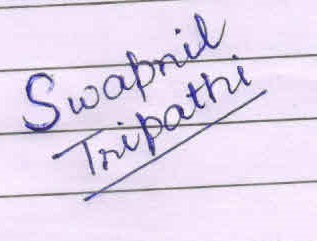 Swapnil
Tripathi